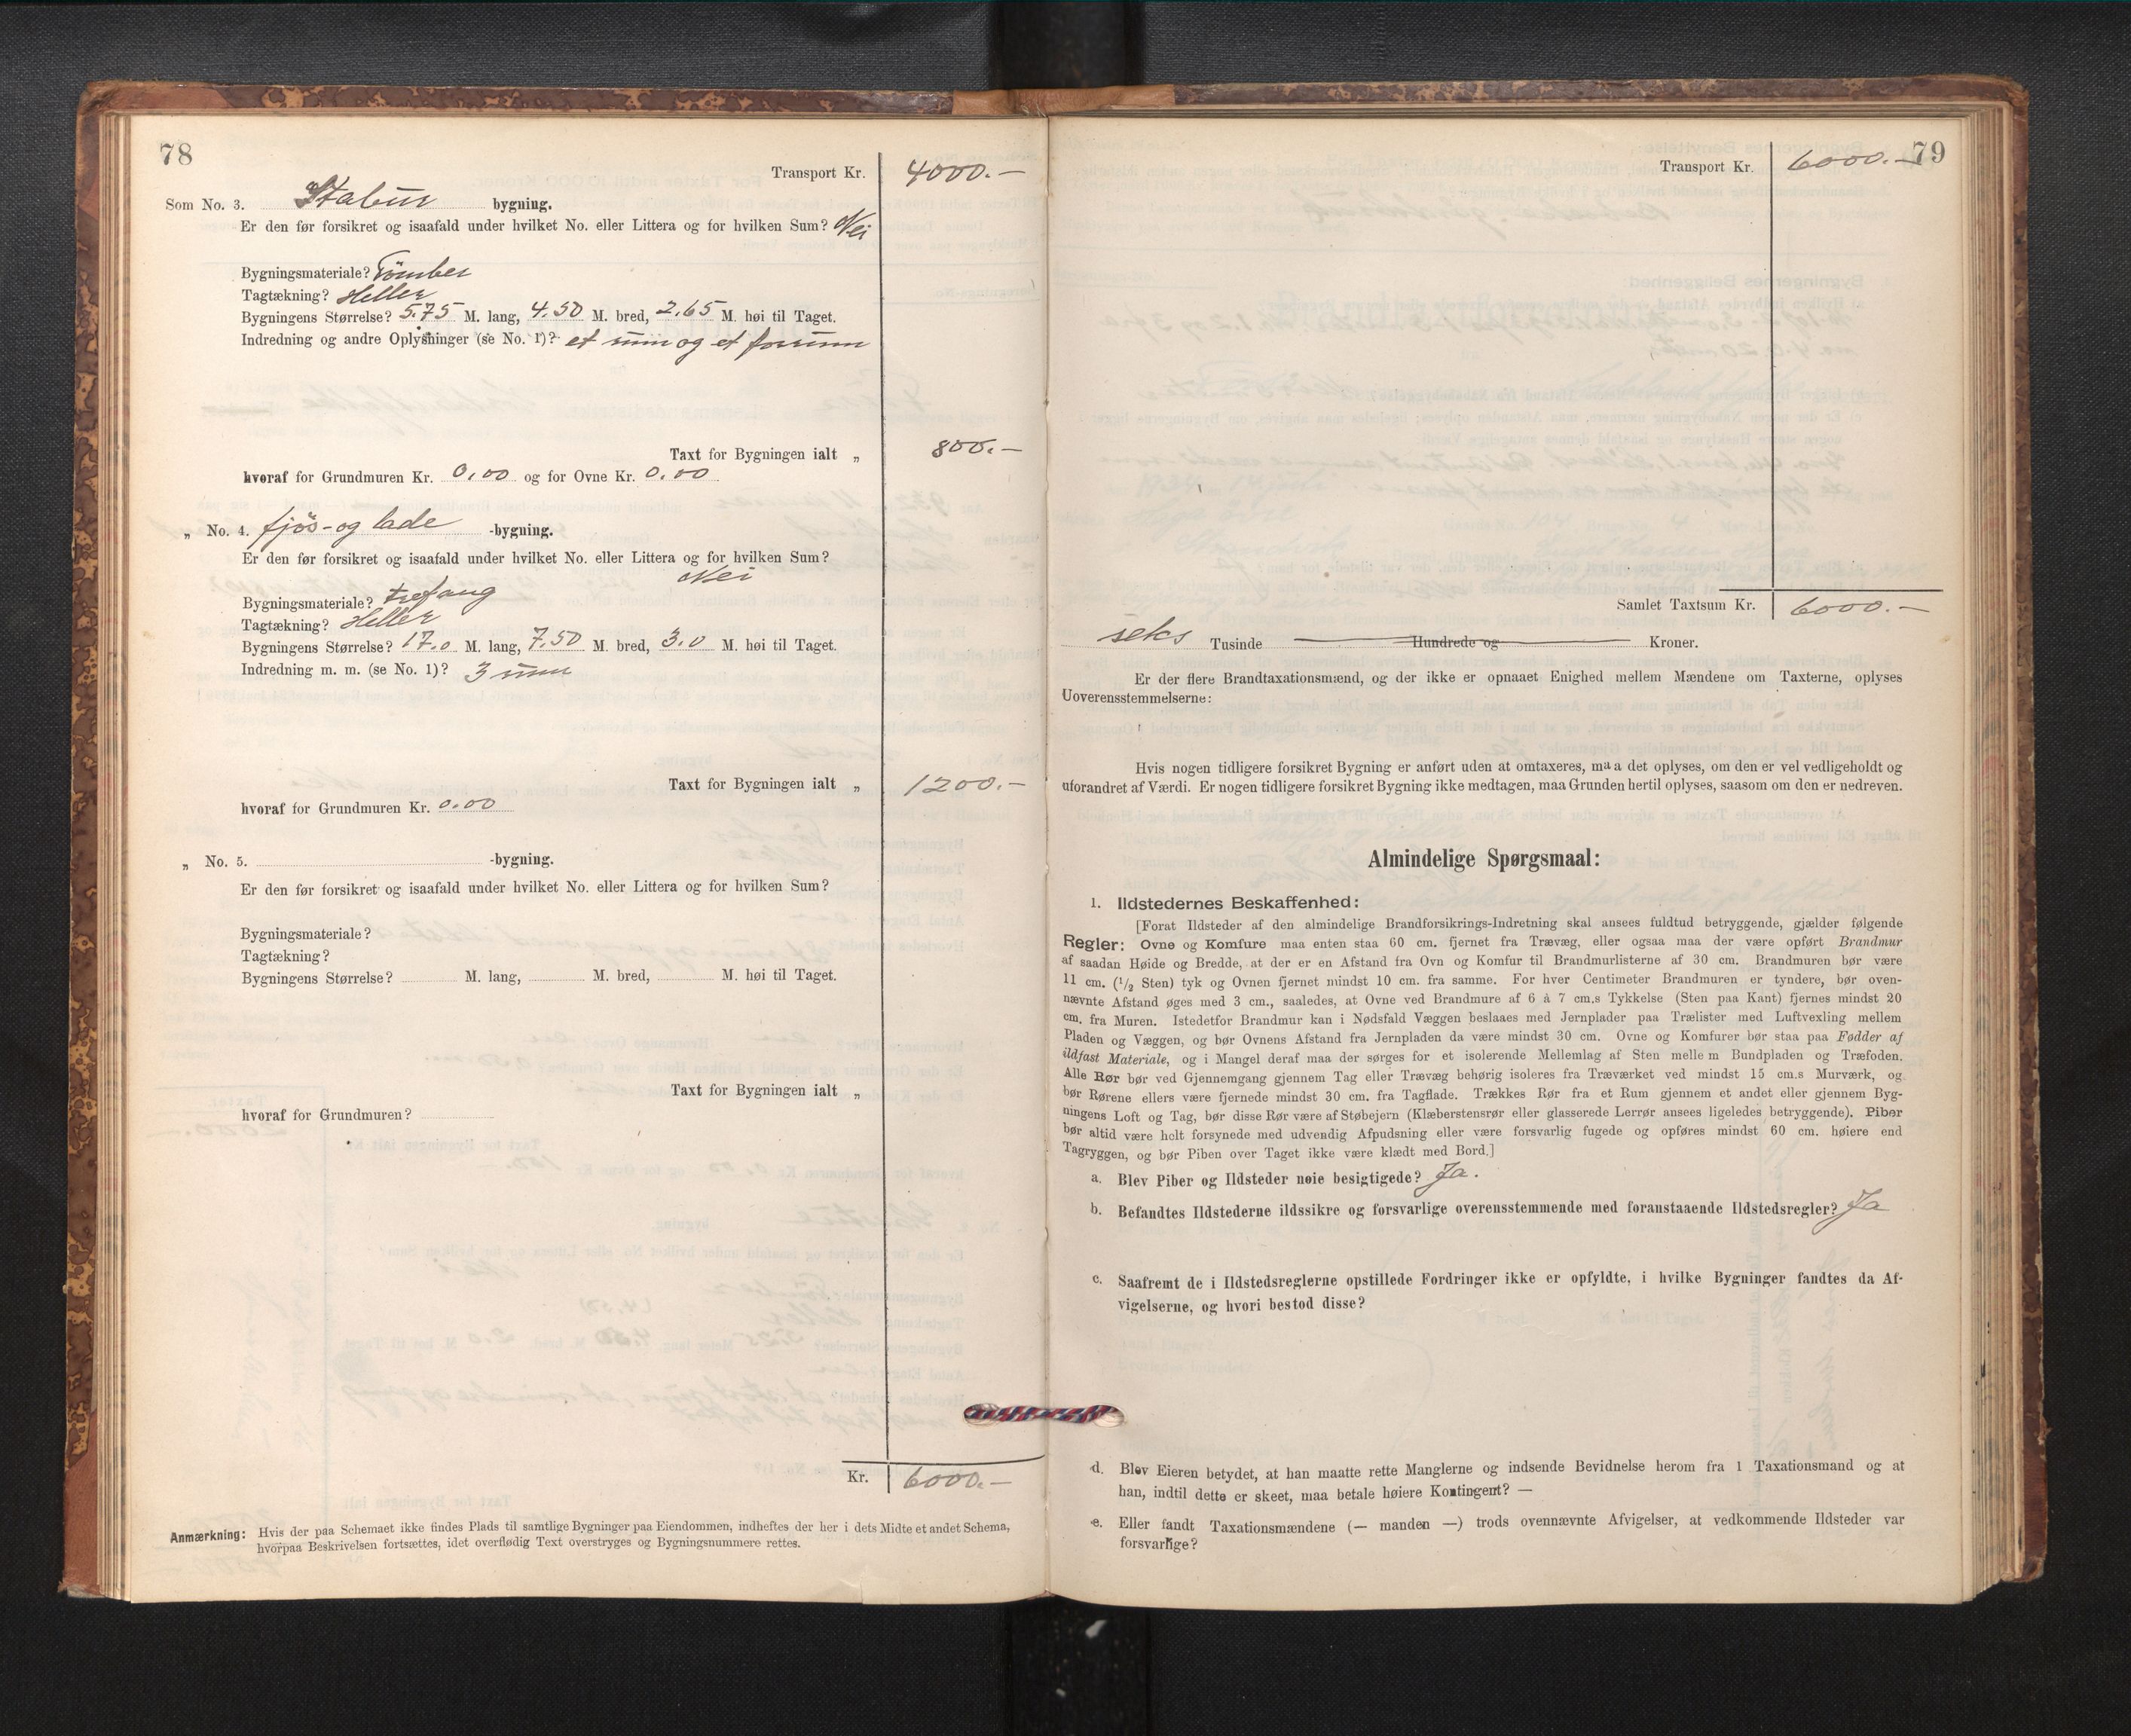 78
Transport Kr. 4000.—
Som No. 3. Stabur bygning.
Er den før forsikret og isaafald under hvilket No. eller Littera og for hvilken Sum? Nei
Bygningsmateriale? Tömber
Tagtækning? Heller
Bygningens Størrelse? 5.75 M. lang, 4.50 M. bred, 2.65 M. høi til Taget.
Indredning og andre Oplysninger (se No. 1)? et rum og et forrum
Taxt for Bygningen ialt „ 800.—
hvoraf for Grundmuren Kr. 0,00 og for Ovne Kr. 0.00
„ No. 4. fjös- og lade -bygning.
Er den før forsikret og isaafald under hvilket No. eller Littera og for hvilken Sum?
Nei
Bygningsmateriale? trefang
Tagtækning? Heller
Bygningens Størrelse? 17.0 M. lang, 7.50 M. bred, 3.0 M. høi til Taget.
Indredning m. m. (se No. 1)? 3 rum
Taxt for Bygningen ialt „ 1200.—
hvoraf for Grundmuren Kr. 0.00
„ No. 5. -bygning.
Er den før forsikret og isaafald under hvilket No. eller Littera og for hvilken Sum?
Bygningsmateriale?
Tagtækning?
Bygningens Størrelse? M. lang, M. bred, M. høi til Taget.
Taxt for Bygningen ialt „
hvoraf for Grundmuren?
Kr. 6000.—
Anmærkning: Hvis der paa Schemaet ikke findes Plads til samtlige Bygninger paa Eiendommen, indheftes der her i dets Midte et andet Schema,
hvorpaa Beskrivelsen fortsættes, idet overflødig Text overstryges og Bygningsnummere rettes.
79
Transport Kr. 6000.—
Samlet Taxtsum Kr. 6000.—
seks Tusinde Hundrede og Kroner.
Er der flere Brandtaxationsmænd, og der ikke er opnaaet Enighed mellem Mændene om Taxterne, oplyses
Uoverensstemmelserne:
Hvis nogen tidligere forsikret Bygning er anført uden at omtaxeres, maa det oplyses, om den er vel vedligeholdt og
uforandret af Værdi. Er nogen tidligere forsikret Bygning ikke medtagen, maa Grunden hertil oplyses, saasom om den er nedreven.
Almindelige Spørgsmaal:
1. Ildstedernes Beskaffenhed:
[Forat Ildsteder af den almindelige Brandforsikrings-Indretning skal ansees fuldtud betryggende, gjælder følgende
Regler: Ovne og Komfure maa enten staa 60 cm. fjernet fra Trævæg, eller ogsaa maa der være opført Brandmur
af saadan Høide og Bredde, at der er en Afstand fra Ovn og Komfur til Brandmurlisterne af 30 cm. Brandmuren bør være
11 cm. (1/2 Sten) tyk og Ovnen fjernet mindst 10 cm. fra samme. For hver Centimeter Brandmuren er tyndere, bør oven-
nævnte Afstand øges med 3 cm., saaledes, at Ovne ved Brandmure af 6 à 7 cm.s Tykkelse (Sten paa Kant) fjernes mindst 20
cm. fra Muren. Istedetfor Brandmur kan i Nødsfald Væggen beslaaes med Jernplader paa Trælister med Luftvexling mellem
Pladen og Væggen, og bør Ovnens Afstand fra Jernpladen da være mindst 30 cm. Ovne og Komfurer bør staa paa Fødder af
ildfast Materiale, og i Mangel deraf maa der sørges for et isolerende Mellemlag af Sten mellem Bundpladen og Træfoden.
Alle Rør bør ved Gjennemgang gjennem Tag eller Trævæg behørig isoleres fra Træværket ved mindst 15 cm.s Murværk, og
bør Rørene ellers være fjernede mindst 30 cm. fra Tagflade. Trækkes Rør fra et Rum gjennem et andet eller gjennem Byg-
ningens Loft og Tag, bør disse Rør være af Støbejern (Klæberstensrør eller glasserede Lerrør ansees ligeledes betryggende). Piber
bør altid være helt forsynede med udvendig Afpudsning eller være forsvarlig fugede og opføres mindst 60 cm. høiere end
Tagryggen, og bør Piben over Taget ikke være klædt med Bord.]
a. Blev Piber og Ildsteder nøie besigtigede? Ja.
b. Befandtes Ildstederne ildssikre og forsvarlige overensstemmende med foranstaaende Ildstedsregler? Ja
c. Saafremt de i Ildstedsreglerne opstillede Fordringer ikke er opfyldte, i hvilke Bygninger fandtes da Af-
vigelserne, og hvori bestod disse?
d. Blev Eieren betydet, at han maatte rette Manglerne og indsende Bevidnelse herom fra 1 Taxationsmand og at
han, indtil dette er skeet, maa betale høiere Kontingent? —
e. Eller fandt Taxationsmændene (— manden —) trods ovennævnte Afvigelser, at vedkommende Ildsteder var
forsvarlige?